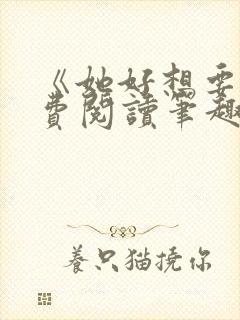 《她好想要
費閱讀筆趣
養只猫撓你